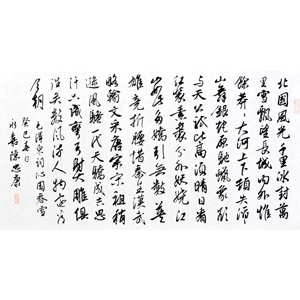 北國風光千里冰封萬
里雪飄望長城内外惟
餘莽々大河上下頓失滔々
山舞銀蛇原馳蠟象欲
與天公試比高須晴日看
紅裝素裹分外妖嬈江
山如此多嬌引無數英
雄競折腰惜秦皇漢武
略輸文采唐宗宋祖稍
遜風騷一代天驕成吉思
汗只識彎弓射大雕俱
往矣數風流人物還看
今朝
毛澤東詞沁園春雪
癸巳春日